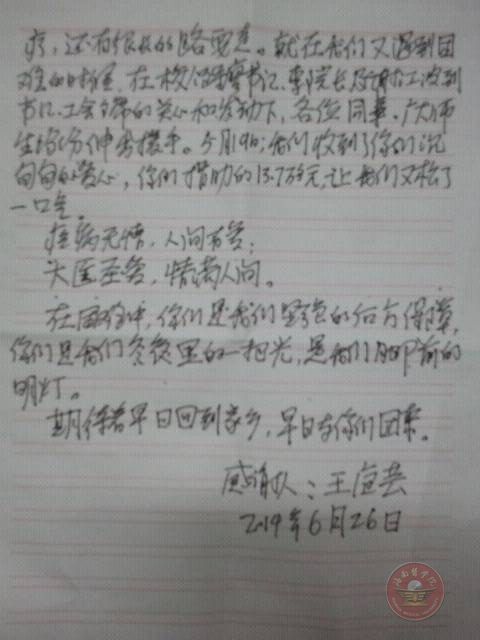 疗，还有很长的路要走。就在我们又遇到困
难的时候，在校领导书记、李院长及
书记、工会主席的关心和发动下，各位同事、广大师
生纷纷伸出援手。5月19日，我们收到了你们沉
甸甸的爱心，你们捐助的13.7万元，让我们又松了
一口气。
疾病无情，人间有爱；
大医至爱，情满人间。
在困难中，你们是我们坚强的后方保障，
你们是我们冬夜里的一把光，是我们脚前的
明灯。
期待着早日回到家乡，早日与你们团聚。
感谢人：王
2019年6月26日
海南医学院